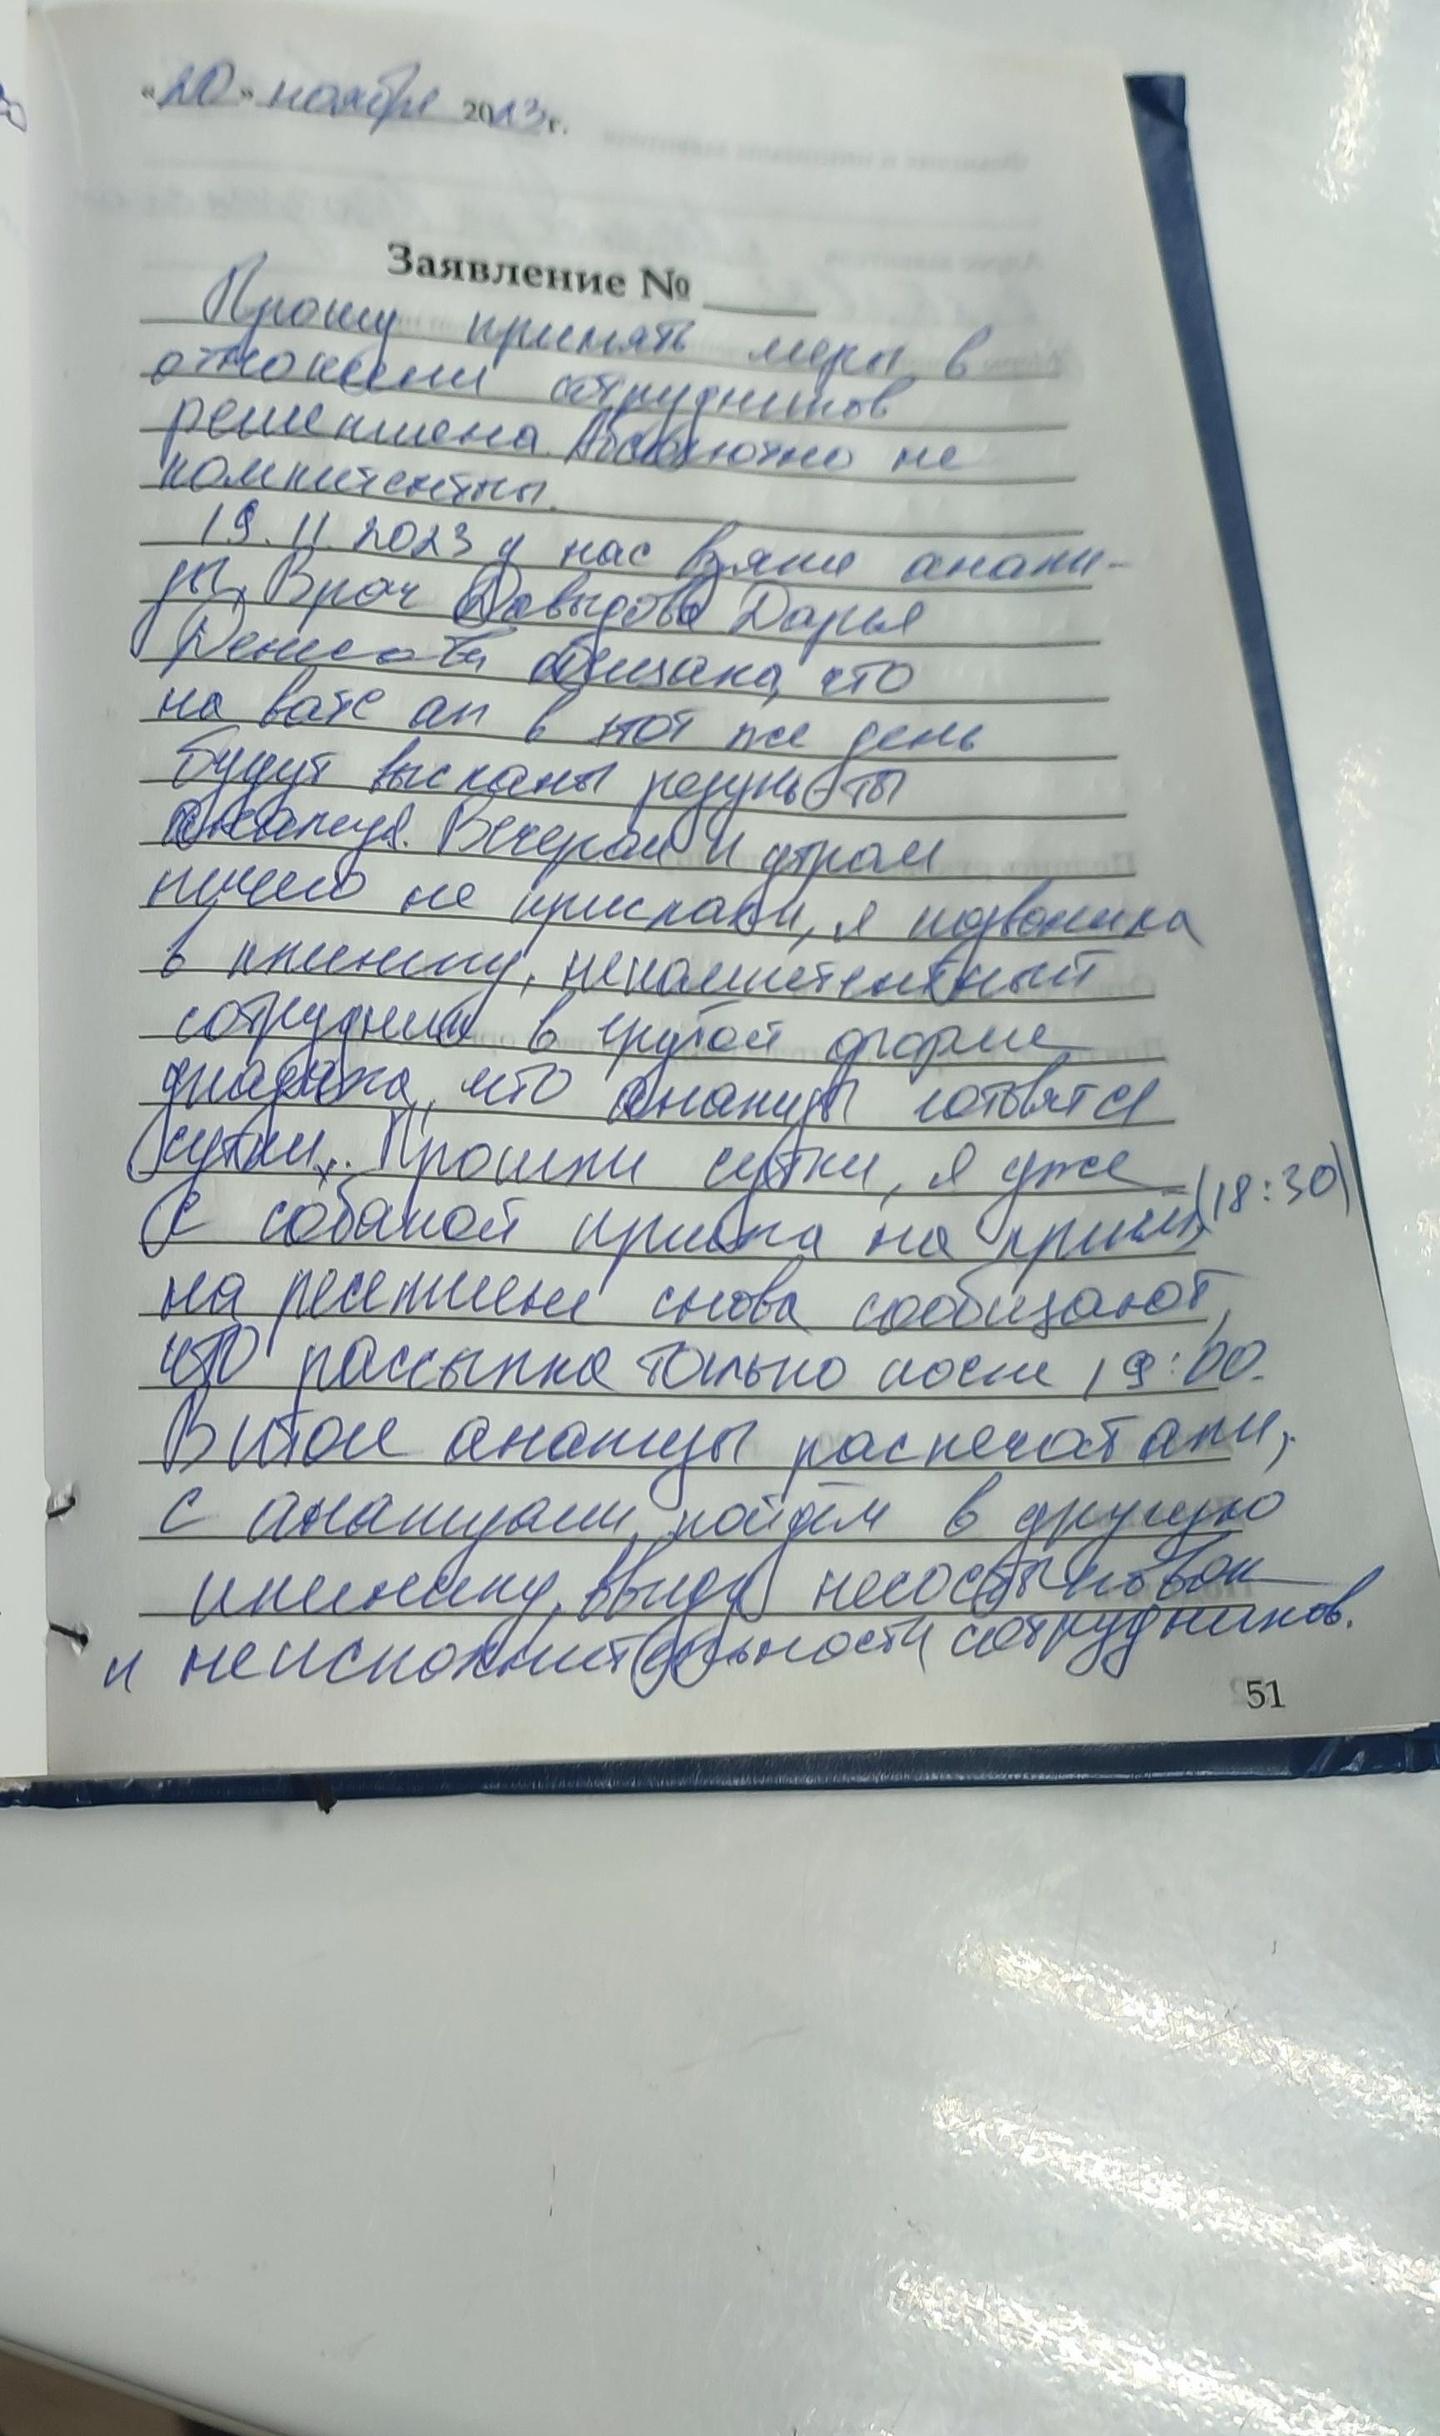 «20» ноября 2023 г.
Заявление № ____
Прошу принять меры в
отношении сотрудников
решепшена. Абсолютно не
компитентны.
19.11.2023 у нас взяли анали-
зы, Врач Давыдова Дарья
обещала, что
на ватс ап в этот же день
будут высланы
анализа. Вечером и утром
ничего не прислали, я позвонила
в клинику, некомпитентный
сотрудник в грубой форме
что анализы готовятся
сутки.. Прошли сутки, я уже
с собакой пришла на приём, (18:30)
на ресепшене снова сообщают,
что рассылка только после 19:00.
В итоге анализы распечатали,
с анализами пойдём в другую
клинику, ввиду
и неисполнительности сотрудников.
51